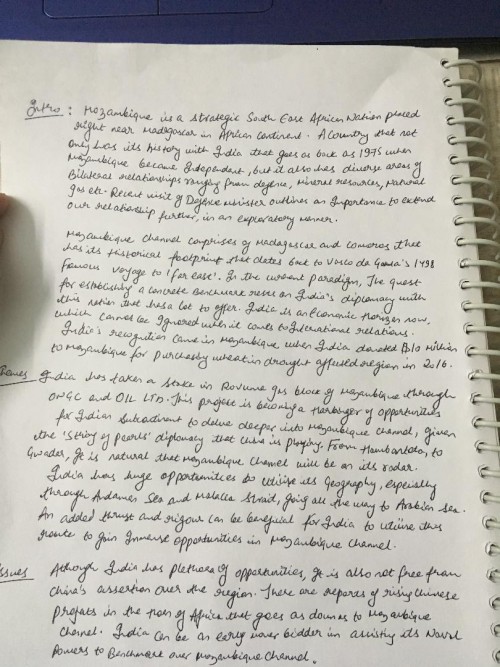 Intro : Mozambique is a strategic South East African Nation placed
right near Madagascar in African continent. A Country that not
only has its history with India that goes as back as 1975 when
Mozambique became Independent, but it also has diverse areas of
Bilateral relationships ranging from defence, mineral resources, Natural
Gas etc. Recent visit of Defence Minister outlines an Importance to extend
our relationship further, in an exploratory manner.
Mozambique Channel comprises of Madagascar and Comoros that
has its Historical footprint that dates back to Vasco da Gama's 1498
famous voyage to 'far east'. In the current Paradigm, The quest
for establishing a concrete Benchmark rests on India's diplomacy with
this nation that has a lot to offer. India is an Economic Horizon now,
which cannot be Ignored when it comes to International relations.
India's recognition came in Mozambique when India donated $10 million
to Mozambique for Purchasing wheat in drought affected region in 2016.
India has taken a stake in Rovuma gas block of Mozambique through
ONGC and OIL LTD. This project is becoming a Harbinger of opportunities
for Indian Subcontinent to delve deeper into Mozambique Channel, given
the 'String of pearls' diplomacy that China is playing. From Hambantota, to
Gwadar, It is natural that Mozambique Channel will be on its radar.
India has huge opportunities to utilize its Geography, especially
through Andaman Sea and Malacca Strait, going all the way to Arabian Sea.
An added thrust and rigour can be beneficial for India to utilize this
route to gain Immense opportunities in Mozambique Channel.
Issues Although India has plethora of opportunities, It is also not free from
China's assertion over the region. There are reports of rising Chinese
Projects in the Horn of Africa that goes as down as to Mozambique
Channel. India can be an early mover bidder in assisting its Naval
Powers to Benchmark over Mozambique Channel.